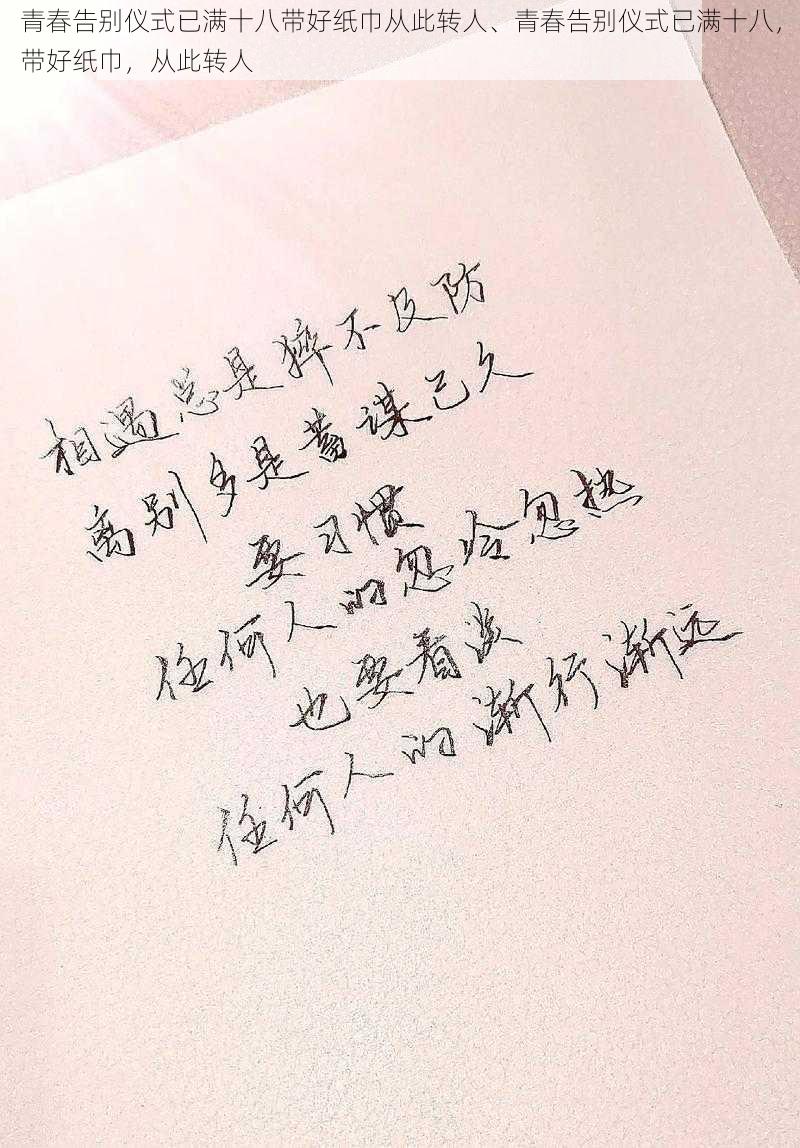 青春告别仪式已满十八带好纸巾从此转人、青春告别仪式已满十八，
带好纸巾，从此转人
相遇总是猝不及防
离别多是蓄谋已久
要习惯
任何人的忽冷忽热
也要看淡
任何人的渐行渐远